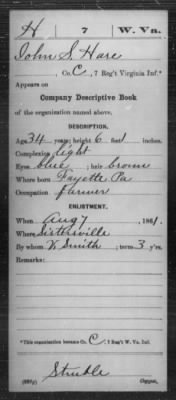 H 7 W. Va.
John S. Hare
, Co. C, 7 Reg't Virginia Inf.*
Appears on
Company Descriptive Book
of the organization named above.
DESCRIPTION.
Age 34 years; height 6 feet 1 inches.
Complexion light
Eyes blue; hair brown
Where born Fayette Pa
Occupation farmer
ENLISTMENT.
When Aug 7, 1861.
Where Sistersville
By whom V. Smith; term 3 y'rs.
Remarks:
*This organization became Co. C, 7 Reg't W. Va. Inf.
Struble
Copyist.